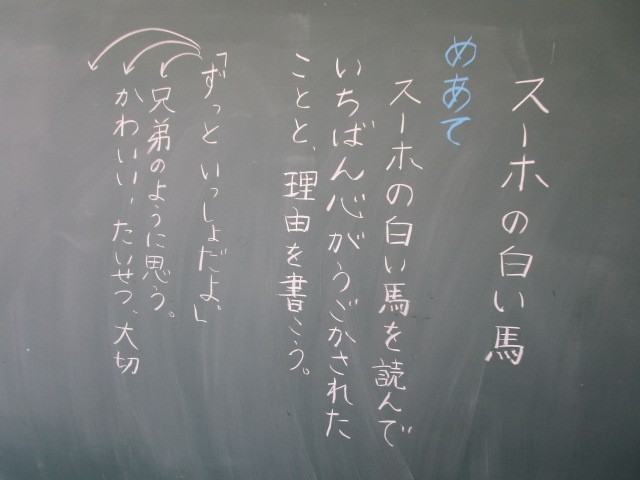 スーホの白い馬
めあて
スーホの白い馬を読んで
いちばん心がうごかされた
ことと、理由を書こう。
「ずっといっしょだよ。」
兄弟のように思う。
かわいい、たいせつ、大切